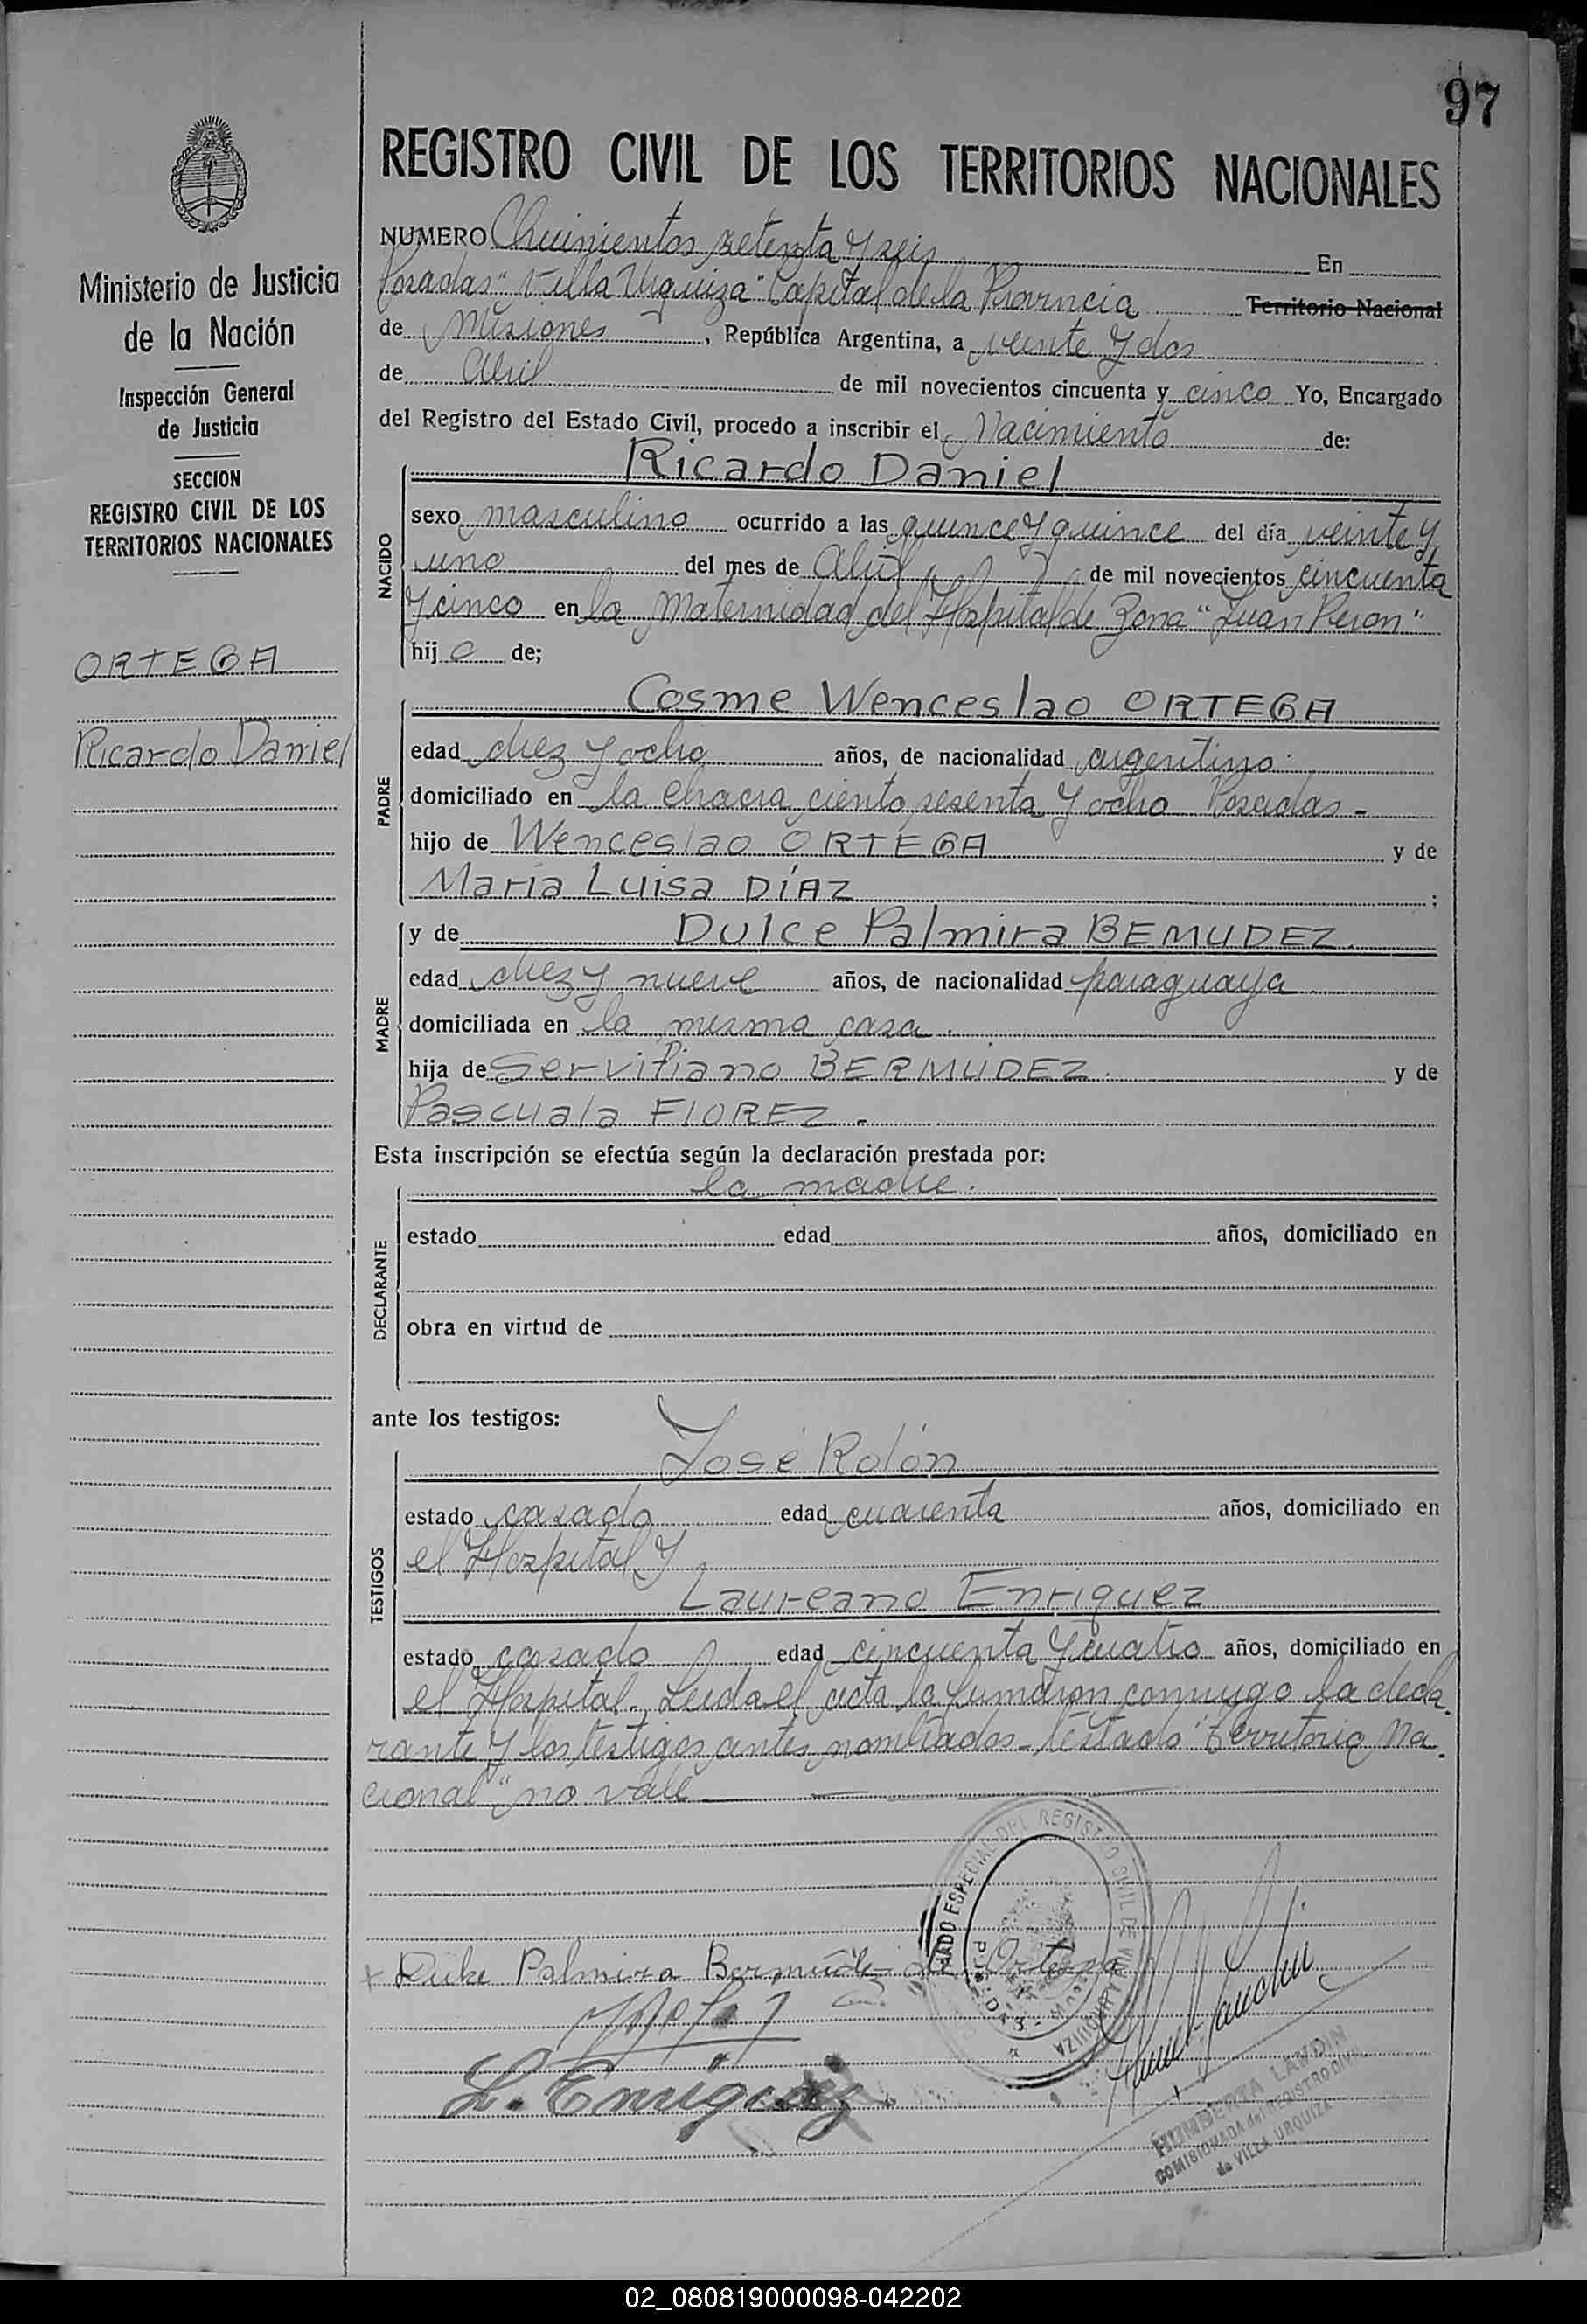 97
REGISTRO CIVIL DE LOS TERRITORIOS NACIONALES
Ministerio de Justicia
de la Nación
Inspección General
de Justicia
SECCION
REGISTRO CIVIL DE LOS
TERRITORIOS NACIONALES
ORTEGA
Ricardo Daniel
NUMERO Quinientos setenta y seis En
Posadas "Villa Urquiza" Capital de la Provincia Territorio Nacional
de Misiones, República Argentina, a veinte y dos
de Abril de mil novecientos cincuenta y cinco Yo, Encargado
del Registro del Estado Civil, procedo a inscribir el Nacimiento de:
NACIDO
Ricardo Daniel
sexo masculino ocurrido a las quince y quince del día veinte y
uno del mes de Abril de mil novecientos cincuenta
y cinco en la Maternidad del Hospital de Zona "Juan Peron"
hijo de;
PADRE
Cosme Wenceslao ORTEGA
edad diez y ocho años, de nacionalidad argentino
domiciliado en la chacra ciento sesenta y ocho Posadas-
hijo de Wenceslao ORTEGA y de
María Luisa DÍAZ ;
MADRE
y de Dulce Palmira BEMUDEZ.
edad diez y nueve años, de nacionalidad paraguaya
domiciliada en la misma casa.
hija de Serviliano BERMUDEZ. y de
Pascuala FLOREZ.-
Esta inscripción se efectúa según la declaración prestada por:
DECLARANTE
la madre.
estado edad años, domiciliado en
obra en virtud de
ante los testigos:
TESTIGOS
José Rolón
estado casado edad cuarenta años, domiciliado en
el Hospital y
Laureano Enriquez
estado casado edad cincuenta y cuatro años, domiciliado en
el Hospital. Leida el acta la firmaron conmigo la decla
rante y los testigos antes nombrados- Testado "Territorio Na
cional" no vale
MADO ESPECIAL DEL REGISTRO CIVIL DE VILLA URQUIZA
x Dulce Palmira Bermúdez de Ortega
L. Enriquez
HUMBERTA LANDIN
COMISIONADA del REGISTRO CIVIL
de VILLA URQUIZA
02_080819000098-042202